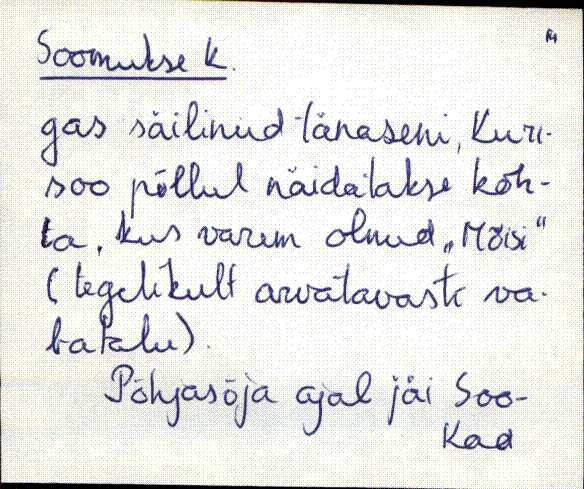 Soomukse k.
gas säilinud tänaseni, Kuri-
soo põllul näidatakse koh-
ta, kus varem olnud „Mõisi“
(tegelikult arvatavasti va-
batalu).
Põhjasõja ajal jäi Soo-
Kad